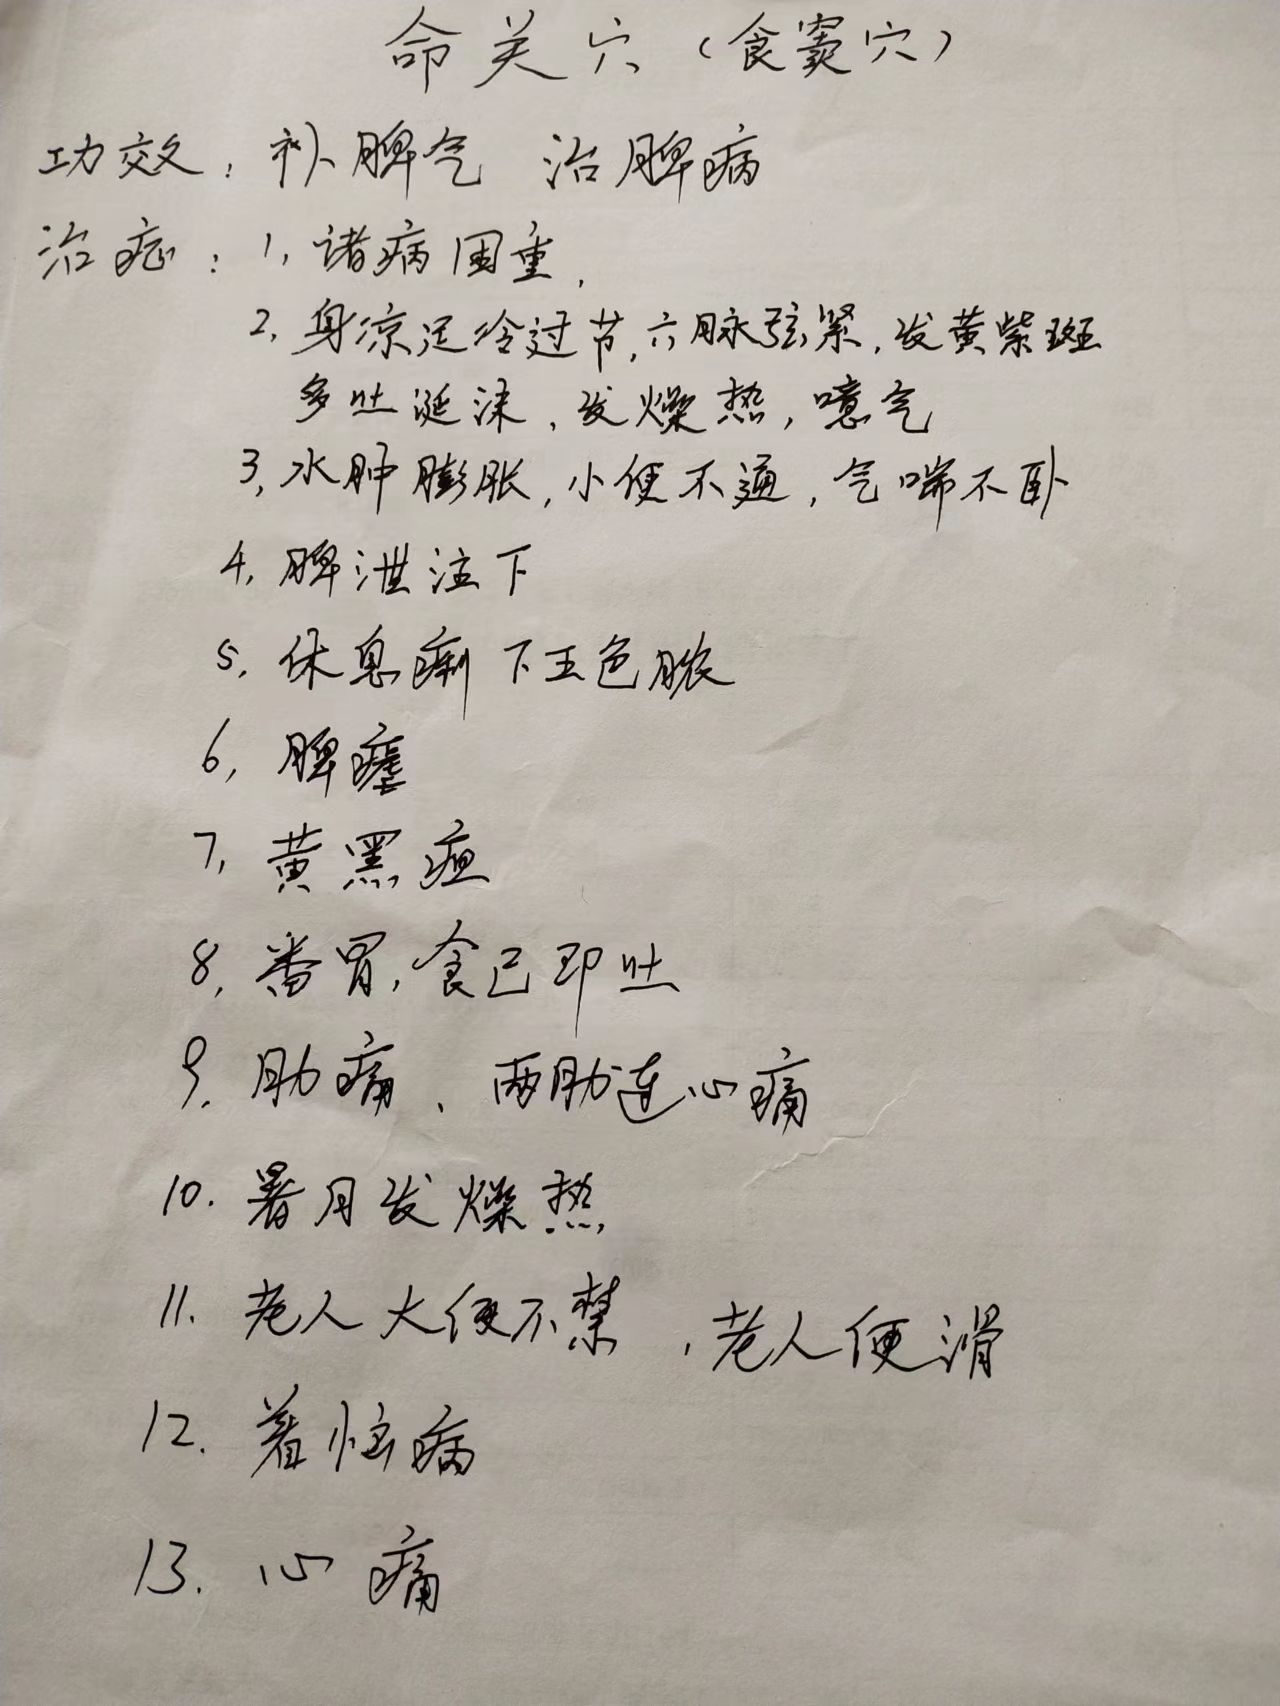 命关穴（食窦穴）
功效：补脾气 治脾病
治症：1，诸病困重，
2，身凉足冷过节，六脉弦紧，发黄紫斑
多吐涎沫，发燥热，噫气
3，水肿膨胀，小便不通，气喘不卧
4，脾泄注下
5，休息痢 下五色脓
6，脾疟
7，黄黑疸
8，番胃，食已即吐
9，肋痛、两肋连心痛
10．暑月发燥热
11．老人大便不禁，老人便滑
12．着恼病
13．心痛